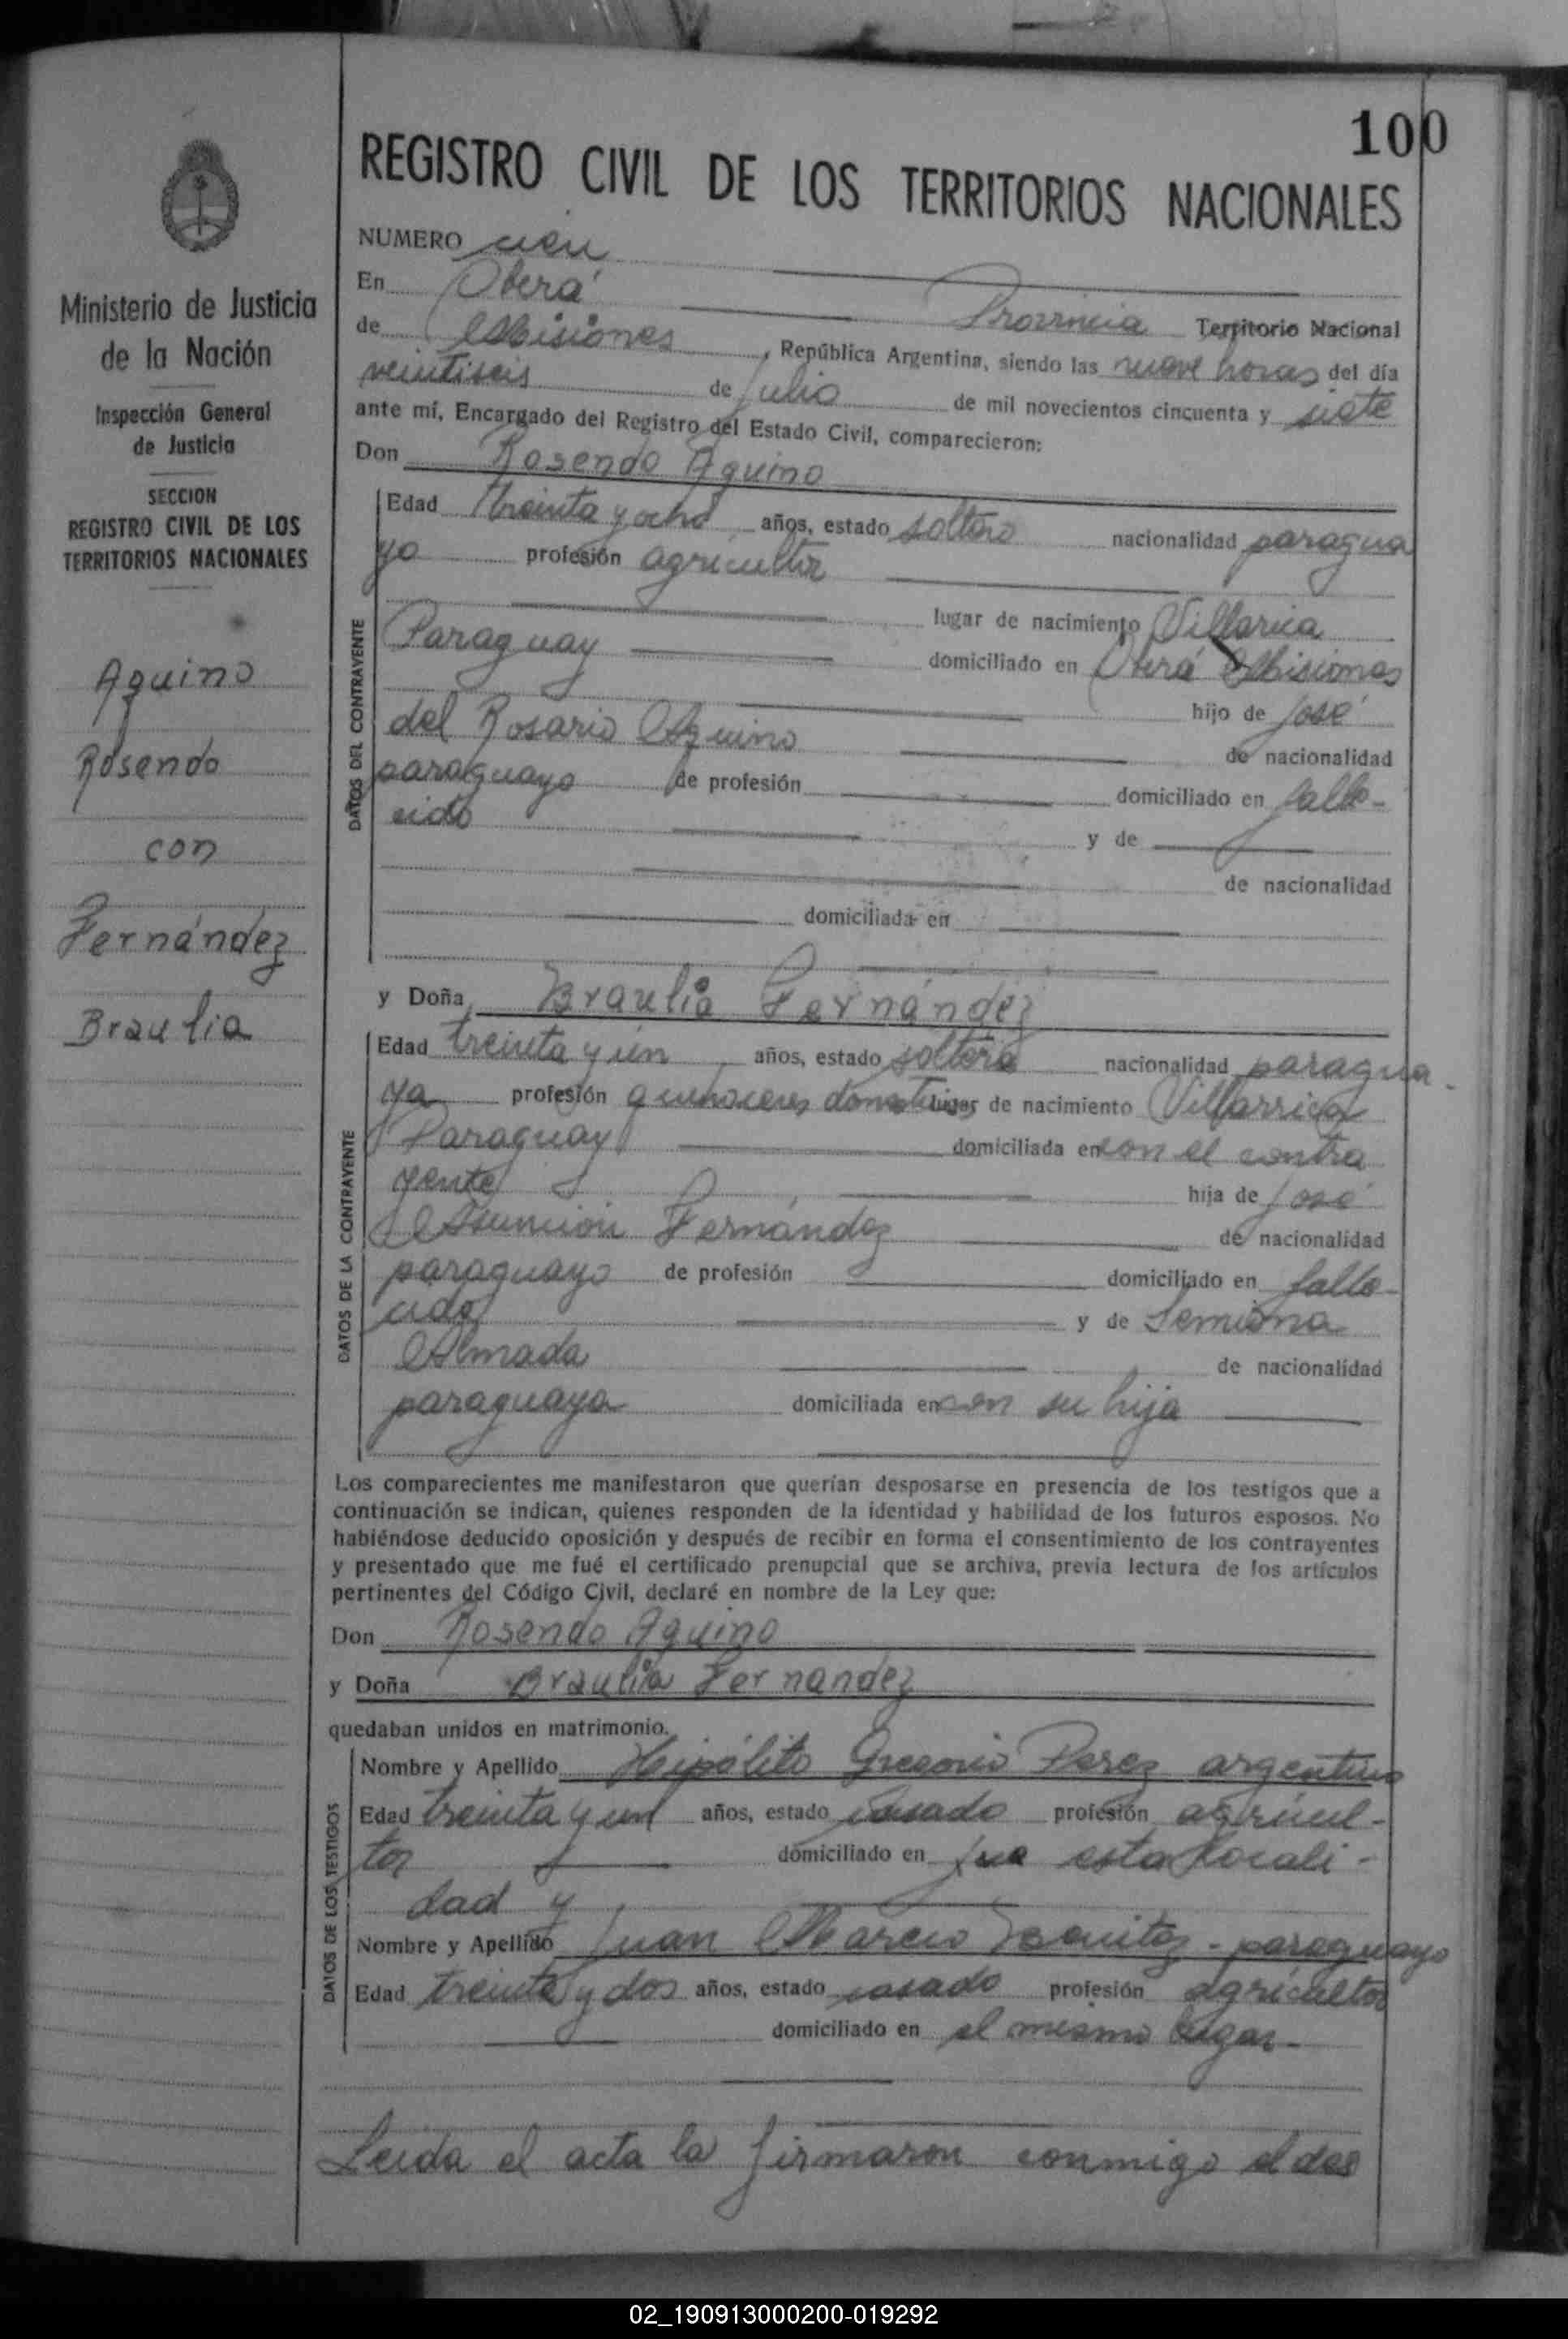 100
REGISTRO CIVIL DE LOS TERRITORIOS NACIONALES
Ministerio de Justicia
de la Nación
Inspección General
de Justicia
SECCION
REGISTRO CIVIL DE LOS
TERRITORIOS NACIONALES
Aquino
Rosendo
con
Fernández
Braulia
NUMERO cien
En Oberá Provincia Territorio Nacional
de Misiones, República Argentina, siendo las nueve horas del día
veintiseis de julio de mil novecientos cincuenta y siete
ante mí, Encargado del Registro del Estado Civil, comparecieron:
Don Rosendo Aquino
DATOS DEL CONTRAYENTE
Edad treinta y ocho años, estado soltero nacionalidad paragua
yo profesión agricultor
lugar de nacimiento Villarica
Paraguay domiciliado en Oberá Misiones
hijo de José
del Rosario Aquino de nacionalidad
paraguayo de profesión domiciliado en falle-
cido y de
de nacionalidad
domiciliada en
y Doña Braulia Fernández
DATOS DE LA CONTRAYENTE
Edad treinta y un años, estado soltera nacionalidad paragua-
ya profesión quehaceres domésticos lugar de nacimiento Villarrica
Paraguay domiciliada en con el contra
yente hija de José
Asunción Fernández de nacionalidad
paraguayo de profesión domiciliado en falle-
cido y de
Almada de nacionalidad
paraguaya domiciliada en con su hija
Los comparecientes me manifestaron que querían desposarse en presencia de los testigos que a
continuación se indican, quienes responden de la identidad y habilidad de los futuros esposos. No
habiéndose deducido oposición y después de recibir en forma el consentimiento de los contrayentes
y presentado que me fué el certificado prenupcial que se archiva, previa lectura de los artículos
pertinentes del Código Civil, declaré en nombre de la Ley que:
Don Rosendo Aquino
y Doña Braulia Fernandez
quedaban unidos en matrimonio.
DATOS DE LOS TESTIGOS
Nombre y Apellido Hipólito Gregorio Perez argentino
Edad treinta y un años, estado casado profesión agricul-
tor domiciliado en esta locali-
dad y
Nombre y Apellido Juan Marcio Benitez - paraguayo
Edad treinta y dos años, estado casado profesión agricultor
domiciliado en el mismo lugar-
Leida el acta la firmaron conmigo el des
02_190913000200-019292